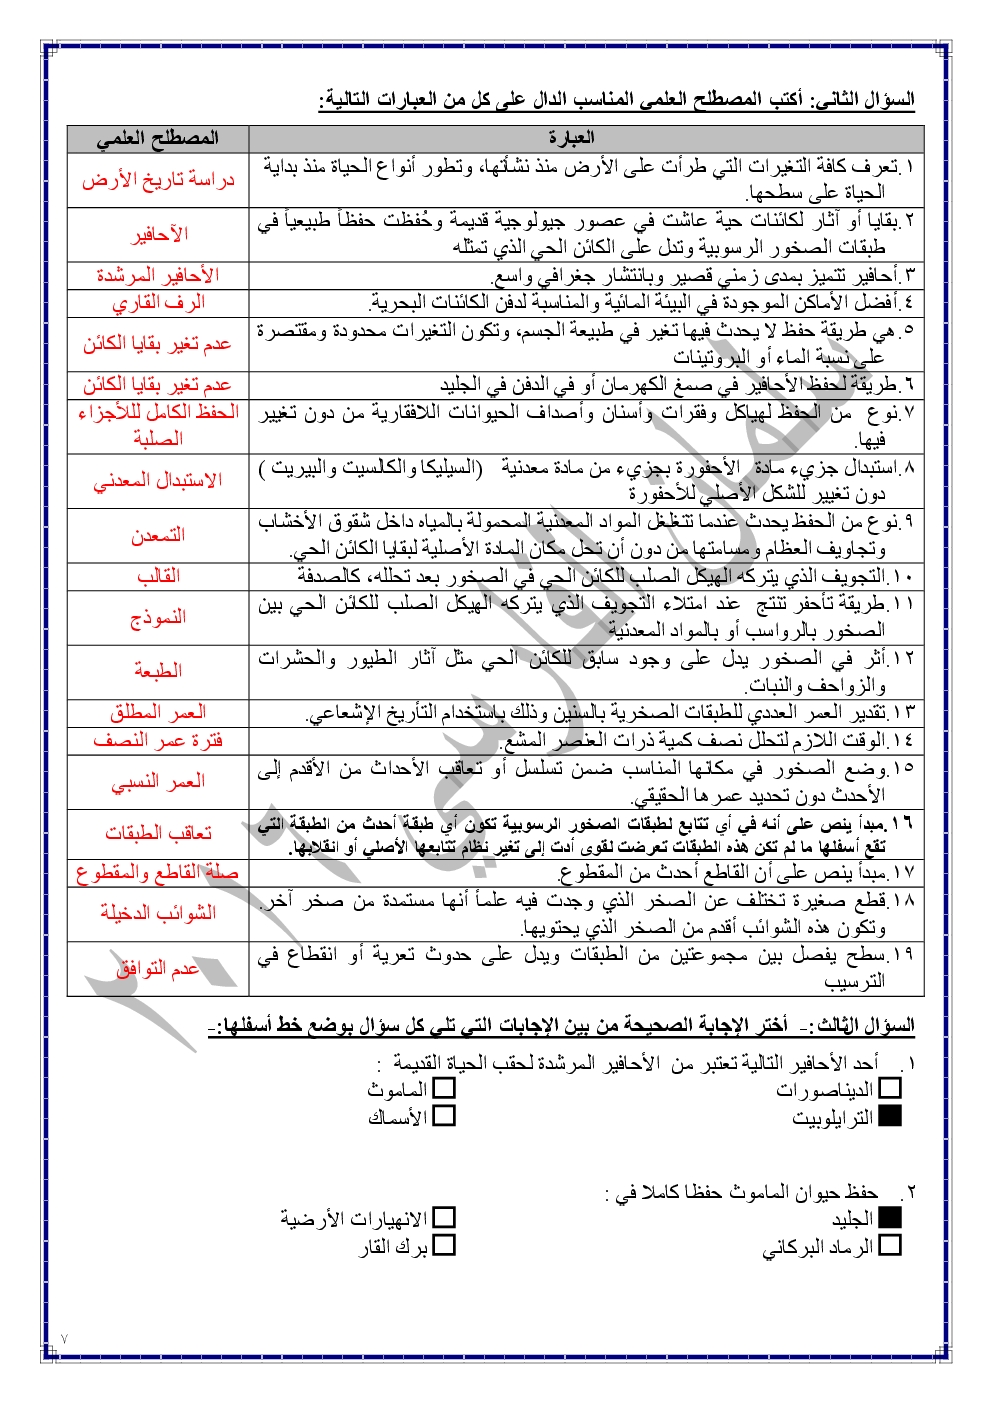 السؤال الثاني: أكتب المصطلح العلمي المناسب الدال على كل من العبارات التالية:
العبارة
المصطلح العلمي
١.تعرف كافة التغيرات التي طرأت على الأرض منذ نشأتها، وتطور أنواع الحياة منذ بداية
الحياة على سطحها.
دراسة تاريخ الأرض
٢.بقايا أو آثار لكائنات حية عاشت في عصور جيولوجية قديمة وحُفظت حفظاً طبيعياً في
طبقات الصخور الرسوبية وتدل على الكائن الحي الذي تمثله
الآحافير
٣.أحافير تتميز بمدى زمني قصير وبانتشار جغرافي واسع.
الأحافير المرشدة
٤.أفضل الأماكن الموجودة في البيئة المائية والمناسبة لدفن الكائنات البحرية.
الرف القاري
٥.هي طريقة حفظ لا يحدث فيها تغير في طبيعة الجسم، وتكون التغيرات محدودة ومقتصرة
على نسبة الماء أو البروتينات
عدم تغير بقايا الكائن
٦.طريقة لحفظ الأحافير في صمغ الكهرمان أو في الدفن في الجليد
عدم تغير بقايا الكائن
٧.نوع من الحفظ لهياكل وفقرات وأسنان وأصداف الحيوانات اللافقارية من دون تغيير
فيها.
الحفظ الكامل لللأجزاء
الصلبة
٨.استبدال جزيء مادة الأحفورة بجزيء من مادة معدنية (السيليكا والكالسيت والبيريت )
دون تغيير للشكل الأصلي للأحفورة
الاستبدال المعدني
٩.نوع من الحفظ يحدث عندما تتغلغل المواد المعدنية المحمولة بالمياه داخل شقوق الأخشاب
وتجاويف العظام ومسامتها من دون أن تحل مكان المادة الأصلية لبقايا الكائن الحي.
التمعدن
١٠.التجويف الذي يتركه الهيكل الصلب للكائن الحي في الصخور بعد تحلله، كالصدفة
القالب
١١.طريقة تأحفر تنتج عند امتلاء التجويف الذي يتركه الهيكل الصلب للكائن الحي بين
الصخور بالرواسب أو بالمواد المعدنية
النموذج
١٢.أثر في الصخور يدل على وجود سابق للكائن الحي مثل آثار الطيور والحشرات
والزواحف والنبات.
الطبعة
١٣.تقدير العمر العددي للطبقات الصخرية بالسنين وذلك باستخدام التأريخ الإشعاعي.
العمر المطلق
١٤.الوقت اللازم لتحلل نصف كمية ذرات العنصر المشع.
فترة عمر النصف
١٥.وضع الصخور في مكانها المناسب ضمن تسلسل أو تعاقب الأحداث من الأقدم إلى
الأحدث دون تحديد عمرها الحقيقي.
العمر النسبي
١٦.مبدأ ينص على أنه في أي تتابع لطبقات الصخور الرسوبية تكون أي طبقة أحدث من الطبقة التي
تقع أسفلها ما لم تكن هذه الطبقات تعرضت لقوى أدت إلى تغير نظام تتابعها الأصلي أو انقلابها.
تعاقب الطبقات
١٧.مبدأ ينص على أن القاطع أحدث من المقطوع.
صلة القاطع والمقطوع
١٨.قطع صغيرة تختلف عن الصخر الذي وجدت فيه علماً أنها مستمدة من صخر آخر.
وتكون هذه الشوائب أقدم من الصخر الذي يحتويها.
الشوائب الدخيلة
١٩.سطح يفصل بين مجموعتين من الطبقات ويدل على حدوث تعرية أو انقطاع في
الترسيب
عدم التوافق
السؤال الثالث:- أختر الإجابة الصحيحة من بين الإجابات التي تلي كل سؤال بوضع خط أسفلها:-
١. أحد الأحافير التالية تعتبر من الأحافير المرشدة لحقب الحياة القديمة :
الديناصورات الماموث
الترايلوبيت الأسماك
٢. حفظ حيوان الماموث حفظا كاملا في :
الجليد الانهيارات الأرضية
الرماد البركاني برك القار
٧
سلمان الفارسي ٢٠١٦